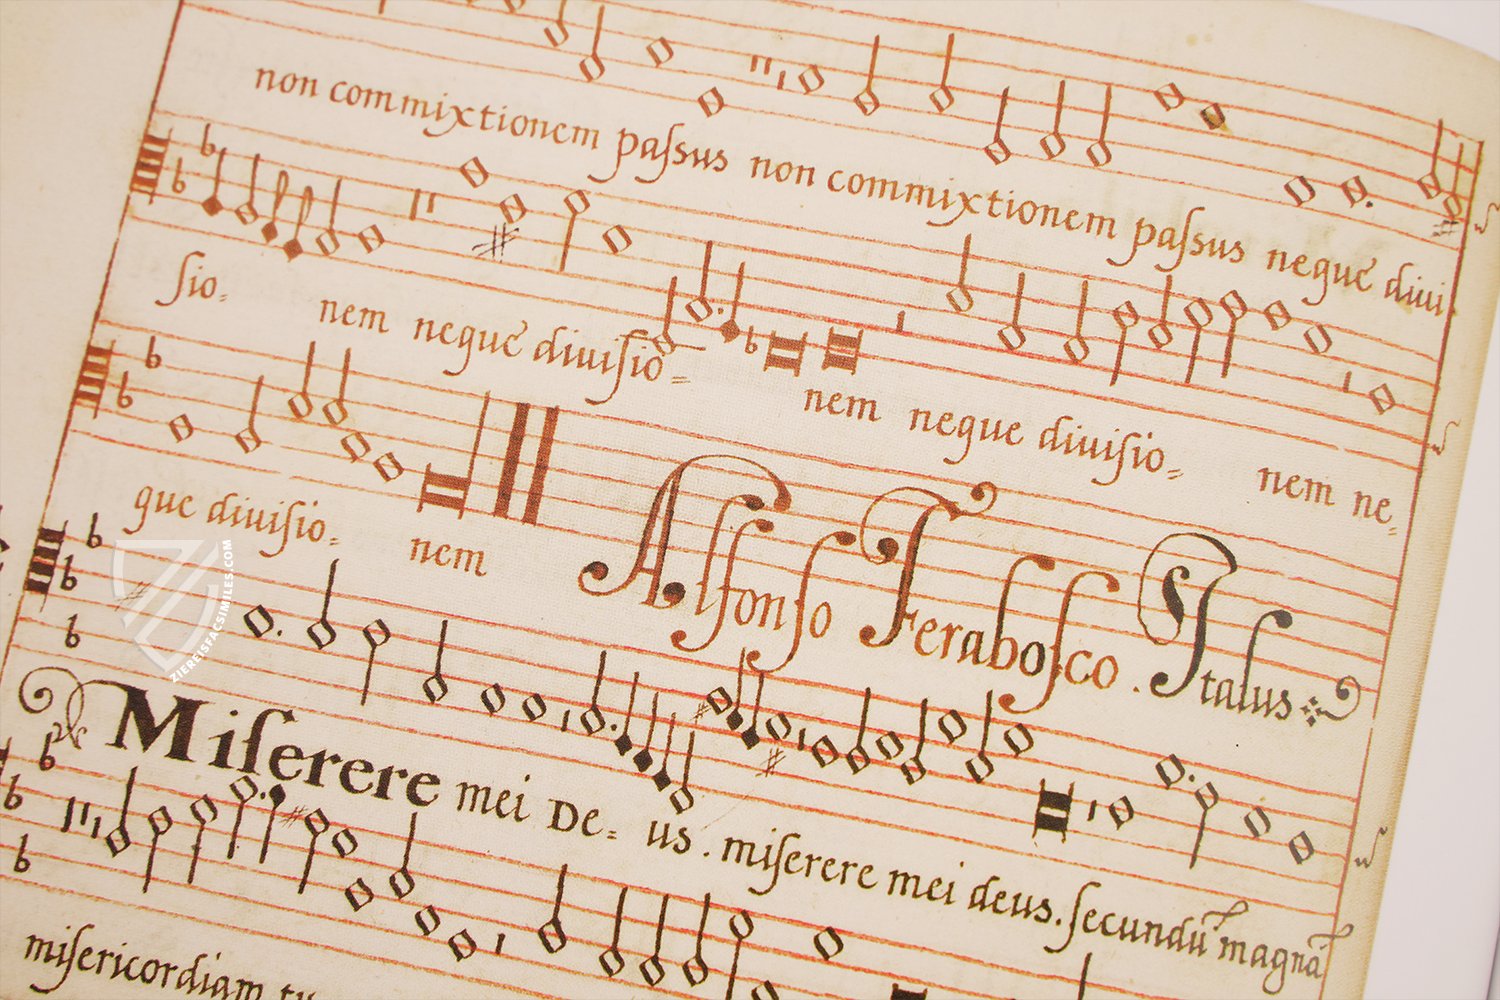 non commixtionem paſsus non commixtionem paſsus neque diui
ſio= nem neque diuiſio= nem neque diuiſio= nem ne=
que diuiſio= nem
Alfonſo Feraboſco. Italus
Miſerere mei De= us. miſerere mei deus. ſecundũ magnã
miſericordiam tu
ZIEREISFACSIMILES.COM